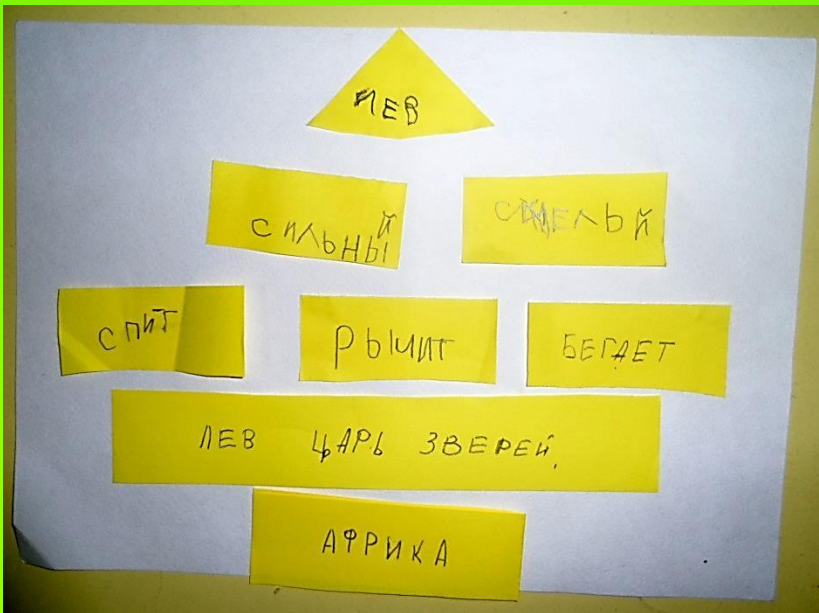 ЛЕВ
СИЛЬНЫЙ
СМЕЛЫЙ
СПИТ
РЫЧИТ
БЕГАЕТ
ЛЕВ ЦАРЬ ЗВЕРЕЙ.
АФРИКА